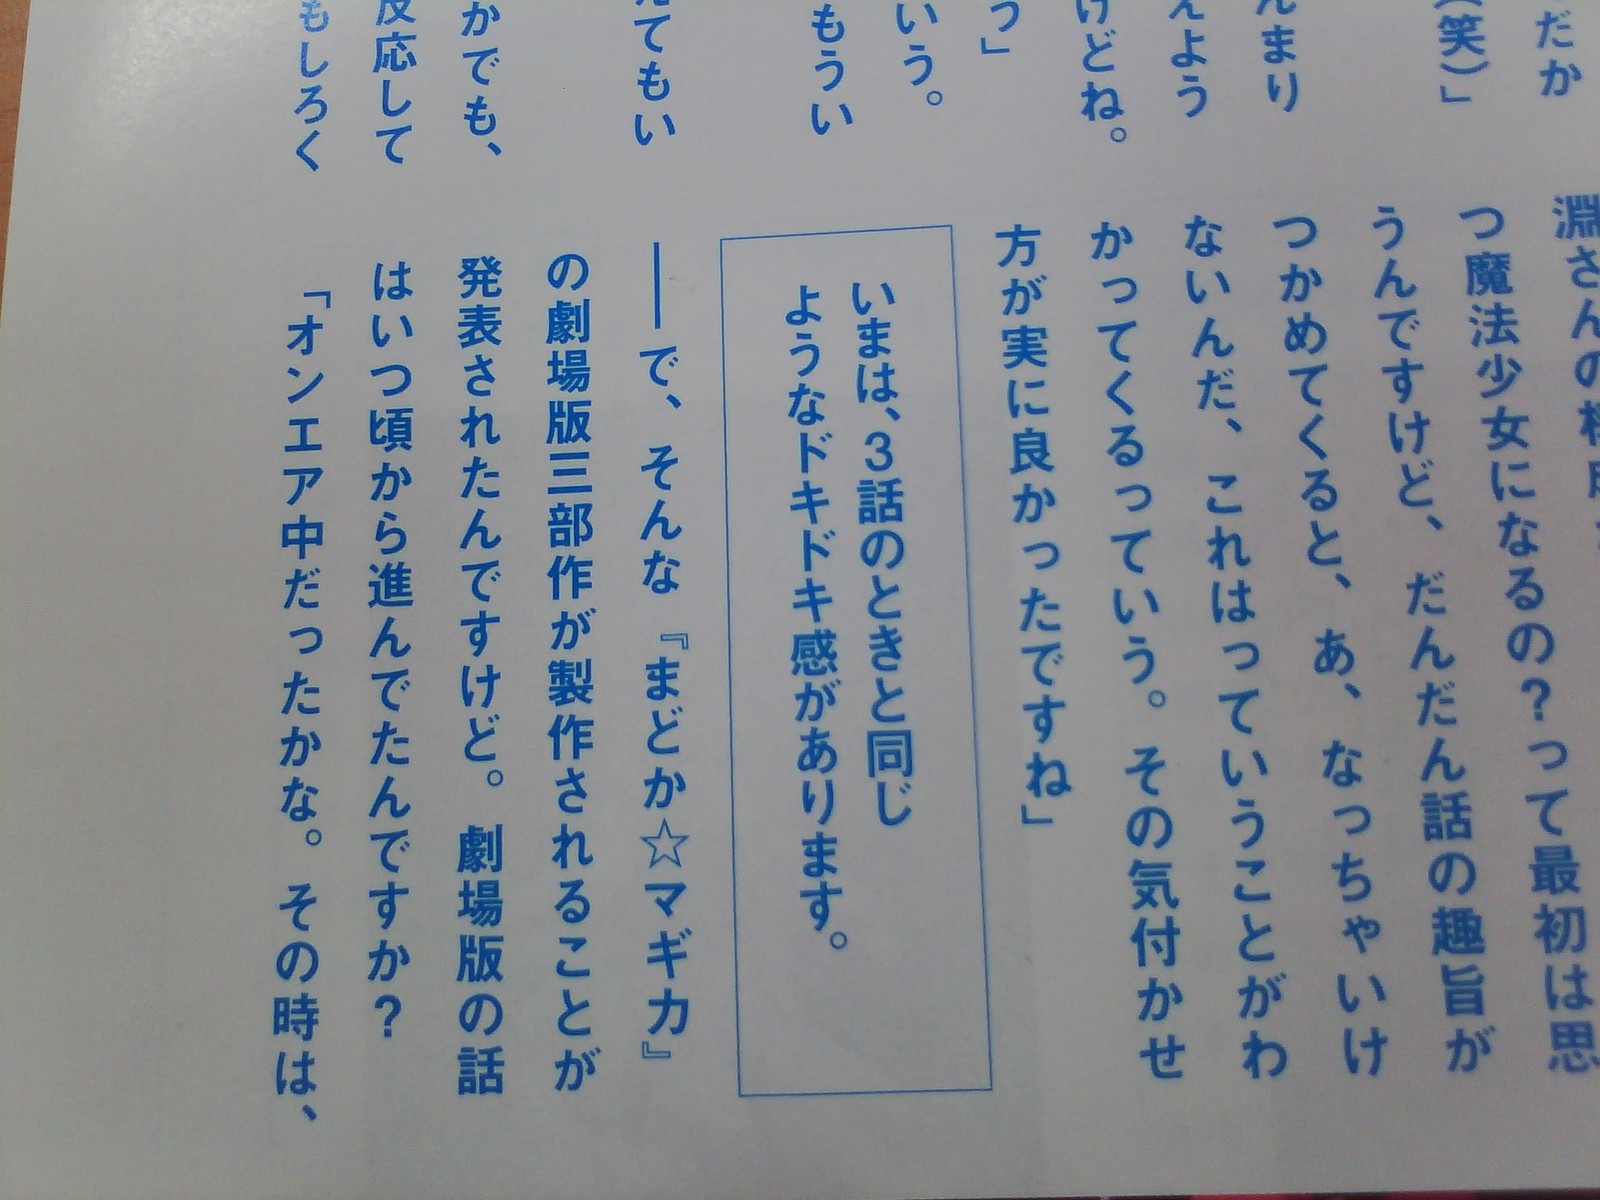 だか
（笑）」
んまり
えよう
けどね。
っ」
いう。
もうい
てもい
かでも、
反応して
もしろく
淵さんの
つ魔法少女になるの？って最初は思
うんですけど、だんだん話の趣旨が
つかめてくると、あ、なっちゃいけ
ないんだ、これはっていうことがわ
かってくるっていう。その気付かせ
方が実に良かったですね」
いまは、3話のときと同じ
ようなドキドキ感があります。
――で、そんな『まどか☆マギカ』
の劇場版三部作が製作されることが
発表されたんですけど。劇場版の話
はいつ頃から進んでたんですか？
「オンエア中だったかな。その時は、